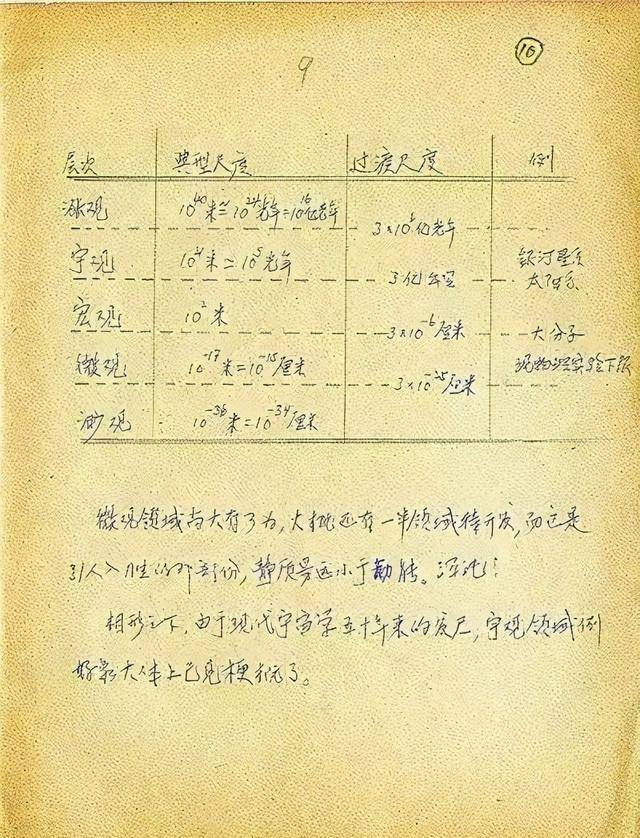 9
⑯
层次 典型尺度 过渡尺度 例
胀观 10⁴⁰米≃10²⁴光年=10¹⁶亿光年
3×10 亿光年
宇观 10²¹米≃10⁵光年 银河星系
3亿 太阳系
宏观 10²米
3×10⁻⁶厘米 大分子
微观 10⁻¹⁷米=10⁻¹⁵厘米 现物理实验下限
3×10⁻²⁵厘米
渺观 10⁻³⁶米=10⁻³⁴厘米
微观领域尚大有了为,大概还有一半领域待开发,而这是
引人入胜的那部份,静质量远小于动能。深沉!
相形之下,由于现代宇宙学五十年来的发展,宇观领域倒
好象大体上已见梗概了。